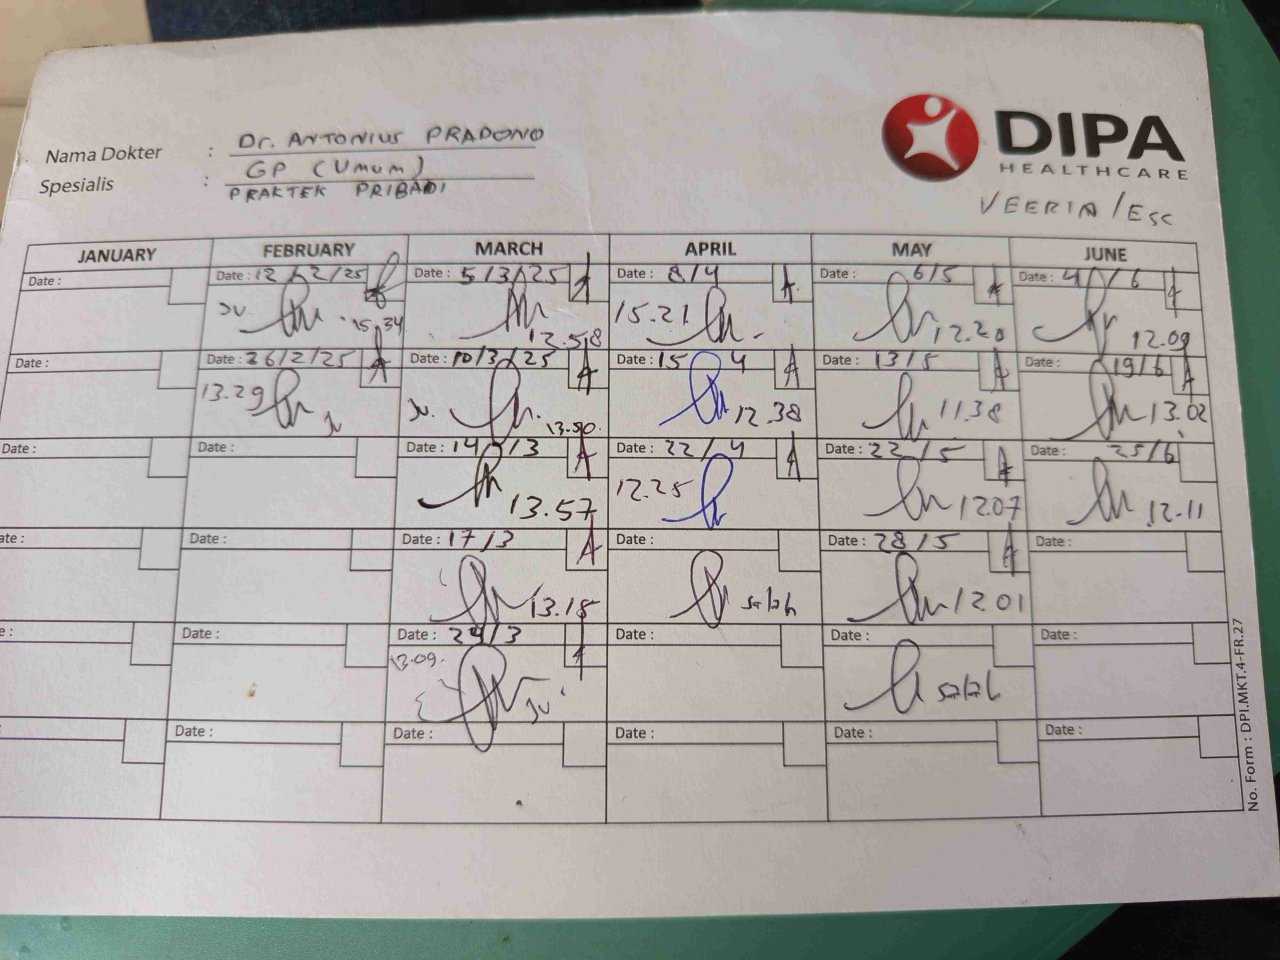 Nama Dokter : Dr. ANTONIUS PRADONO
Spesialis : GP (UMUM)
PRAKTEK PRIBADI
DIPA
HEALTHCARE
VEERIA/ESC
JANUARY FEBRUARY MARCH APRIL MAY JUNE
Date : Date : 12/2/25 Date : 5/3/25 Date : 8/4 Date : 6/5 Date : 4/6
15.34 12.58 15.21 12.20 12.09
Date : Date : 26/2/25 Date : 10/3/25 Date : 15 4 Date : 13/5 Date : 19/6
13.29 13.50. 12.38 11.38 13.02
Date : Date : Date : 14/3 Date : 22/4 Date : 22/5 Date : 25/6
13.57 12.25 12.07 12.11
ate : Date : Date : 17/3 Date : Date : 28/5 Date :
13.18 12.01
e : Date : Date : 24/3 Date : Date : Date :
13.09.
: Date : Date : Date : Date : Date :
No. Form : DPI.MKT.4-FR.27